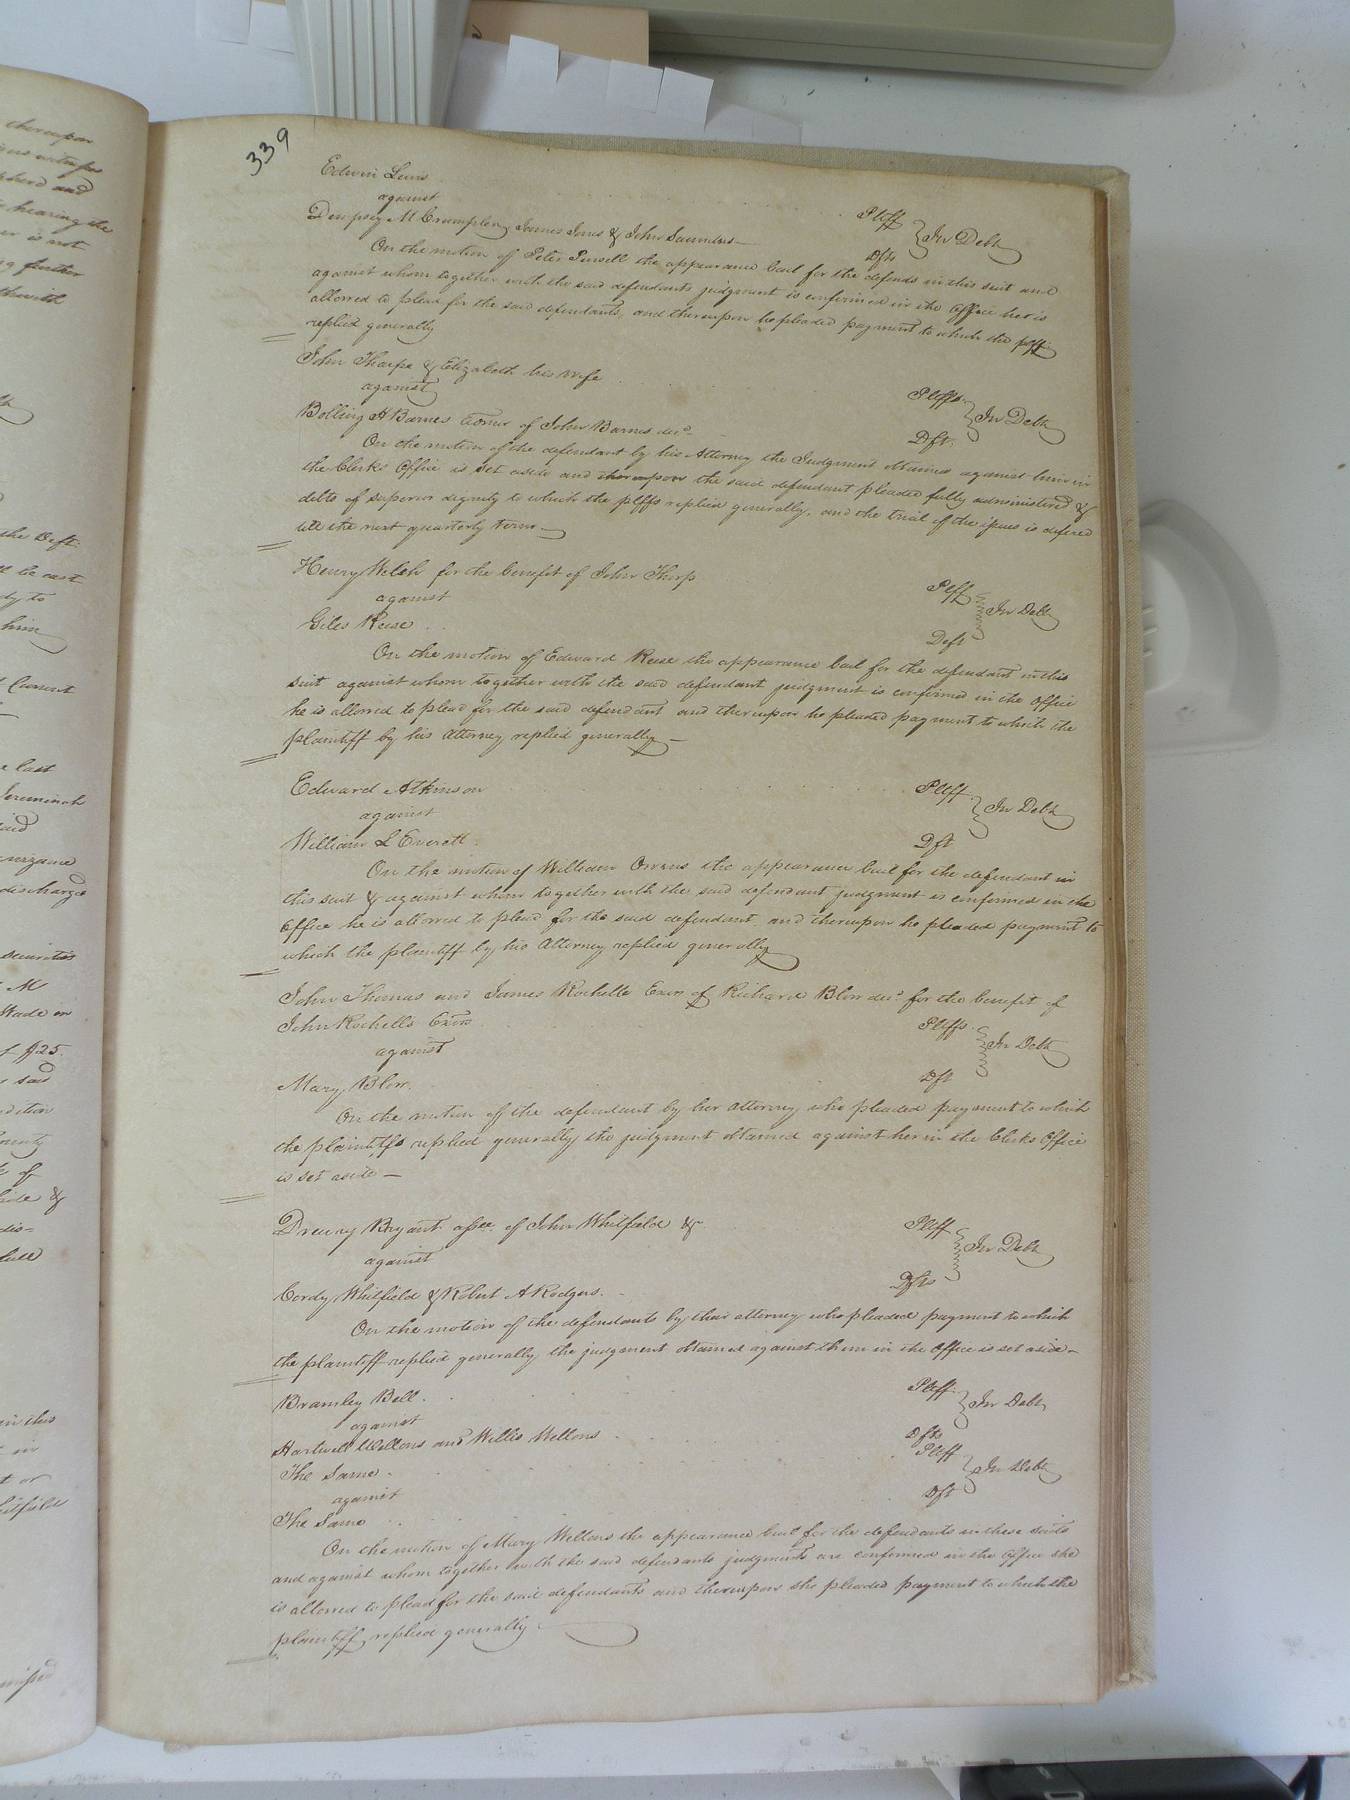 339
Edwin Lewis Pltff
against In Debt
Dempsey M Crumpler, James Jones & John Saunders Dfts
On the motion of Peter Pursell the appearance bail for the defends in this suit and
against whom together with the said defendants judgment is confirmed in the office he is
allowed to plead for the said defendants, and thereupon he pleaded payment to which the pltff
replied generally
John Tharpe & Elizabeth his wife Pltffs
against In Debt
Bolling H Barnes admr of John Barnes decd Dft
On the motion of the defendant by his Attorney the Judgment obtained against him in
the Clerks Office is set aside and thereupon the said defendant pleaded fully administered &
debts of superior dignity to which the plffs replied generally, and the trial of the issues is defered
till the next quarterly term
Henry Welsh for the benefit of John Thorp Plff
against In Debt
Giles Reese Deft
On the motion of Edward Reese the appearance bail for the defendant in this
suit against whom together with the said defendant judgment is confirmed in the office
he is allowed to plead for the said defendant and thereupon he pleaded payment to which the
plaintiff by his attorney replied generally
Edward Atkinson Pltff
against In Debt
William L Everett Dft
On the motion of William Owens the appearance bail for the defendant in
this suit & against whom together with the said defendant judgment is confirmed in the
office he is allowed to plead for the said defendant and thereupon he pleaded payment to
which the plaintiff by his Attorney replied generally
John Thomas and James Rochelle Exors of Richard Blow decd for the benefit of
John Rochells Exor Pltffs
against In Debt
Mary Blow. Dft
On the motion of the defendant by her attorney who pleaded payment to which
the plaintiffs replied generally the judgment obtained against her in the Clerks Office
is set aside
Drewry Bryant assee. of John Whitfield & Pltff
against In Debt
Cordy Whitfield & Robert A Rodgers. Dfts
On the motion of the defendants by their attorney who pleaded payment to which
the plaintiff replied generally the judgment obtained against them in the office is set aside
Bramley Bell. Pltff
against In Debt
Hartwell Wellons and Willis Wellons Dfts
The Same Pltff
against In Debt
The Same Dft
On the motion of Mary Wellons the appearance bail for the defendants in these suits
and against whom together with the said defendants judgments are confirmed in the office she
is allowed to plead for the said defendants and thereupon she pleaded payment to which the
plaintiff replied generally